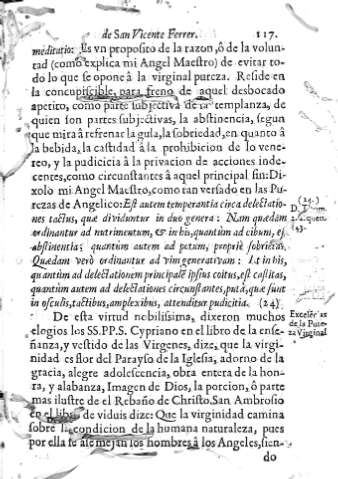 de San Vicente Ferrer. 117.
meditatio: Es vn proposito de la razon, ô de la volun-
tad (como explica mi Angel Maestro) de evitar to-
do lo que se opone â la virginal pureza. Reside en
la concupiscible, para freno de aquel desbocado
apetito, como parte subjectiva de la templanza, de
quien son partes subjectivas, la abstinencia, segun
que mira â refrenar la gula, la sobriedad, en quanto â
la bebida, la castidad â la prohibicion de lo vene-
reo, y la pudicicia â la privacion de acciones inde-
centes, como circunstantes â aquel principal fin: Di-
xolo mi Angel Maestro, como tan versado en las Pu-
rezas de Angelico: Est autem temperantia circa delectatio- (24.)
nes tactus, quæ dividuntur in duo genera: Nam quædam
ordinantur ad nutrimentum, & in his, quantum ad cibum, est
abstinentia; quantum autem ad potum, propriè sobrietas.
Quædam verò ordinantur ad vim generativam: & in his,
quantum ad delectationem principalẽ ipsius coitus, est castitas,
quantum autem ad delectationes circunstantes, putá, quæ sunt
in osculis, tactibus, amplexibus, attenditur pudicitia. (24)
De esta virtud nebilissima, dixeron muchos
elogios los SS. PP. S. Cypriano en el libro de la ense-
ñanza, y vestido de las Virgenes, dize, que la virgi-
nidad es flor del Parayso de la Iglesia, adorno de la
gracia, alegre adolescencia, obra entera de la hon-
ra, y alabanza, Imagen de Dios, la porcion, ô parte
mas ilustre de el Rebaño de Christo. San Ambrosio
en el libro de viduis dize: Que la virginidad camina
sobre la condicion de la humana naturaleza, pues
por ella se asemejan los hombres â los Angeles, sien-
do
Excelẽcias
de la Pure-
za Virginal